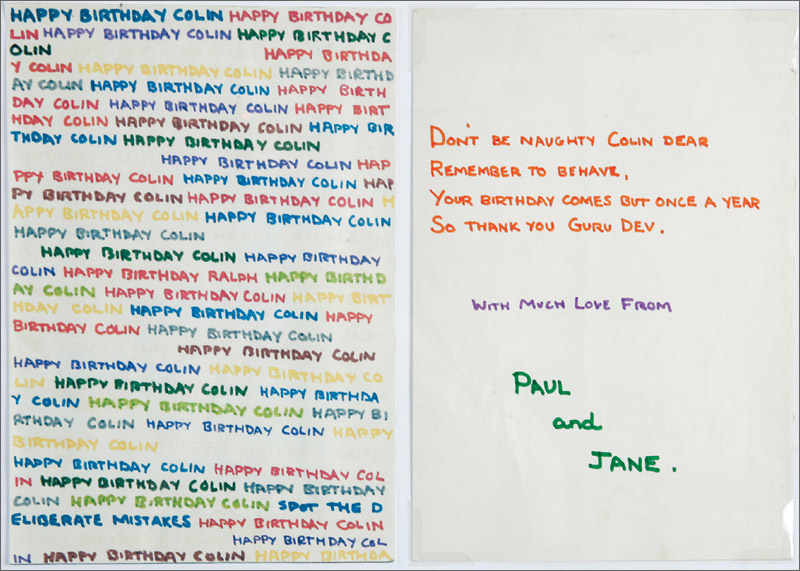 HAPPY BIRTHDAY COLIN HAPPY BIRTHDAY CO
LIN HAPPY BIRTHDAY COLIN HAPPY BIRTHDAY C
OLIN HAPPY BIRTHDA
Y COLIN HAPPY BIRTHDAY COLIN HAPPY BIRTHD
AY COLIN HAPPY BIRTHDAY COLIN HAPPY BIRTH
DAY COLIN HAPPY BIRTHDAY COLIN HAPPY BIRT
HDAY COLIN HAPPY BIRTHDAY COLIN HAPPY BIR
THDAY COLIN HAPPY BIRTHDAY COLIN
HAPPY BIRTHDAY COLIN HAP
PPY BIRTHDAY COLIN HAPPY BIRTHDAY COLIN HAP
PY BIRTHDAY COLIN HAPPY BIRTHDAY COLIN H
APPY BIRTHDAY COLIN HAPPY BIRTHDAY COLIN
HAPPY BIRTHDAY COLIN
HAPPY BIRTHDAY COLIN HAPPY BIRTHDAY
COLIN HAPPY BIRTHDAY RALPH HAPPY BIRTHD
AY COLIN HAPPY BIRTHDAY COLIN HAPPY BIRT
HDAY COLIN HAPPY BIRTHDAY COLIN HAPPY
BIRTHDAY COLIN HAPPY BIRTHDAY COLIN
HAPPY BIRTHDAY COLIN
HAPPY BIRTHDAY COLIN HAPPY BIRTHDAY CO
LIN HAPPY BIRTHDAY COLIN HAPPY BIRTHDA
Y COLIN HAPPY BIRTHDAY COLIN HAPPY BI
RTHDAY COLIN HAPPY BIRTHDAY COLIN HAPPY
BIRTHDAY COLIN
HAPPY BIRTHDAY COLIN HAPPY BIRTHDAY COL
IN HAPPY BIRTHDAY COLIN HAPPY BIRTHDAY
COLIN HAPPY BIRTHDAY COLIN SPOT THE D
ELIBERATE MISTAKES HAPPY BIRTHDAY COLIN
HAPPY BIRTHDAY COL
IN HAPPY BIRTHDAY COLIN HAPPY BIRTHDA
DON'T BE NAUGHTY COLIN DEAR
REMEMBER TO BEHAVE,
YOUR BIRTHDAY COMES BUT ONCE A YEAR
SO THANK YOU GURU DEV.
WITH MUCH LOVE FROM
PAUL
and
JANE.